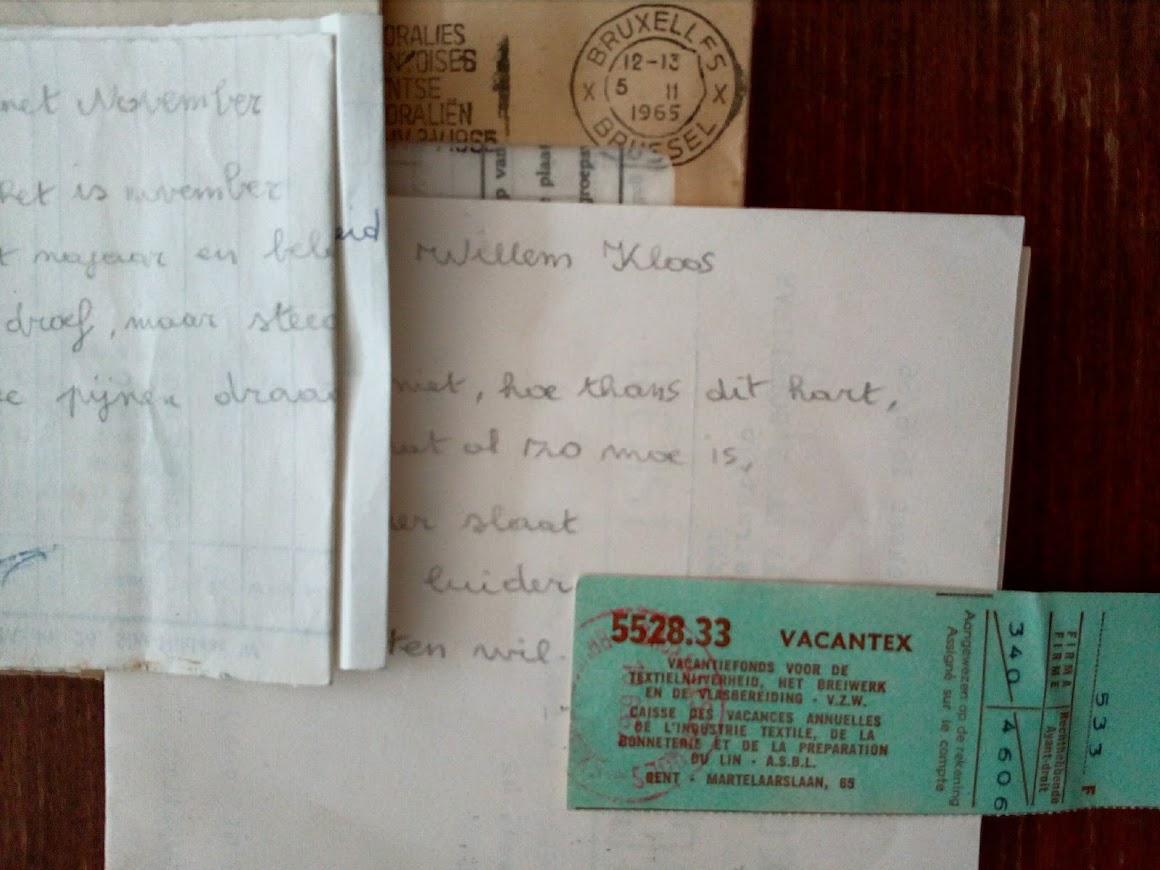 ORALIES
NTOISES
NTSE
ORALIËN
1965
BRUXELLES
12-13
X 5 11 X
1965
BRUSSEL
p van
plaa
groepa
met November
het is november
t najaar en beleid
droef, maar steed
pijnen draa
Willem Kloos
niet, hoe thans dit hart,
at al zo moe is,
er slaat
luider
ten wil.
5528.33 VACANTEX
VACANTIEFONDS VOOR DE
TEXTIELNIJVERHEID, HET BREIWERK
EN DE VLASBEREIDING - V.Z.W.
CAISSE DES VACANCES ANNUELLES
DE L'INDUSTRIE TEXTILE, DE LA
BONNETERIE ET DE LA PREPARATION
DU LIN - A.S.B.L.
GENT - MARTELAARSLAAN, 65
Aangewezen op de rekening
Assigné sur le compte
340 4606
FIRMA
FIRME
Rechthebbende
Ayant-droit
533 F